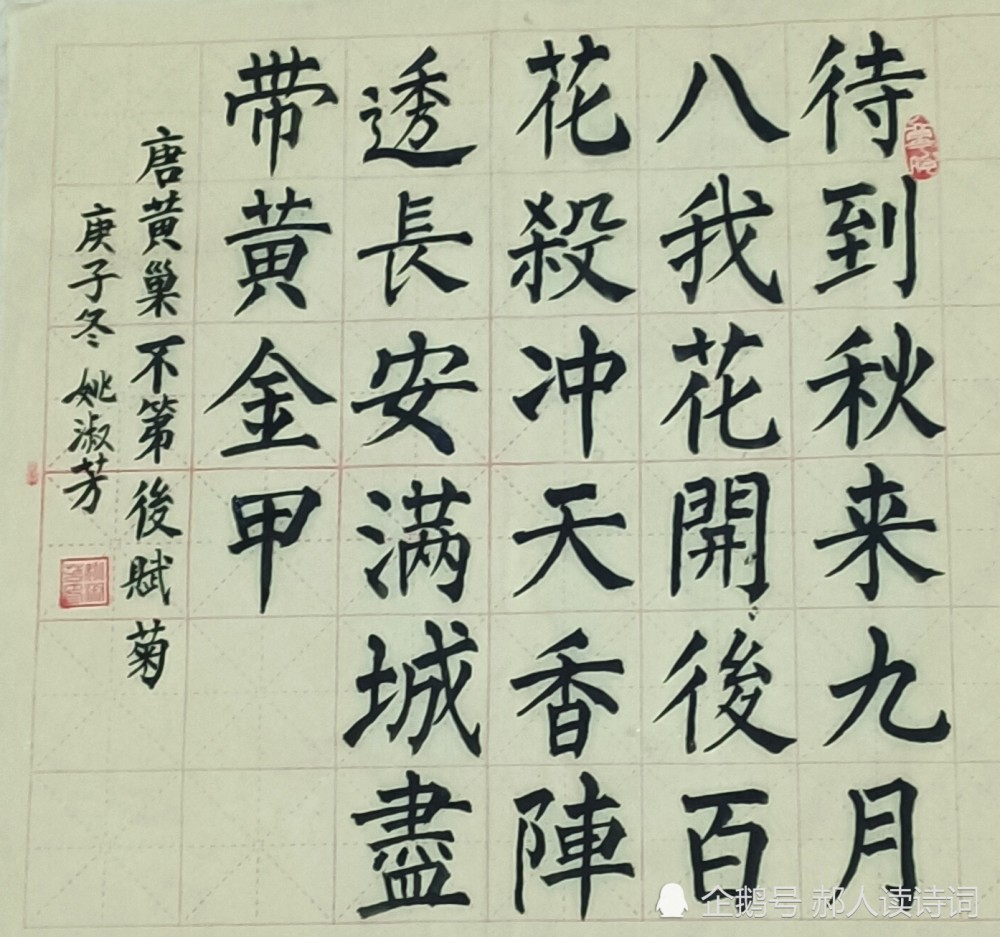 待到秋来九月
八我花開後百
花殺冲天香陣
透長安满城盡
带黄金甲
唐黄巢不第後賦菊
庚子冬 姚淑芳
企鹅号 郝人读诗词